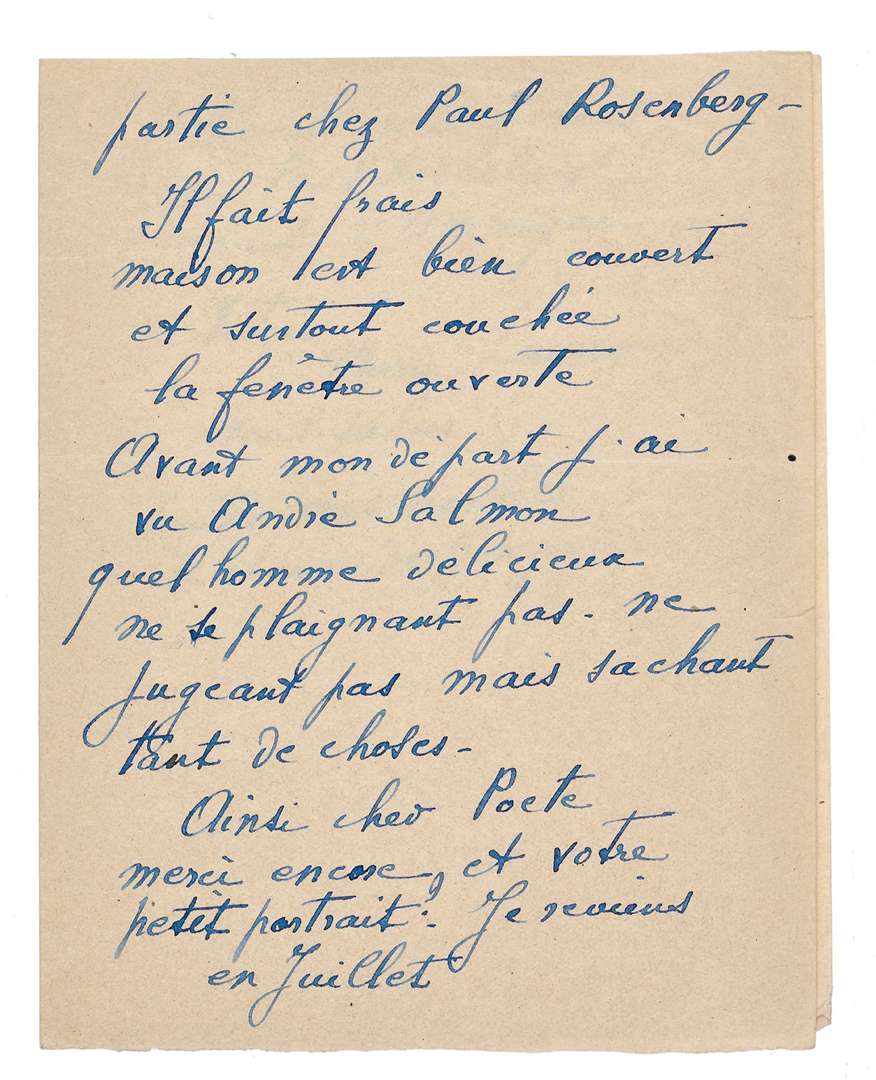 partie chez Paul Rosenberg -
Il fait frais
maison est bien couvert
et surtout couchée
la fenêtre ouverte
Avant mon départ j'ai
vu André Salmon
quel homme délicieux
ne se plaignant pas - ne
jugeant pas mais sachant
tant de choses -
Ainsi cher Poete
merci encore, et votre
petit portrait : Je reviens
en Juillet